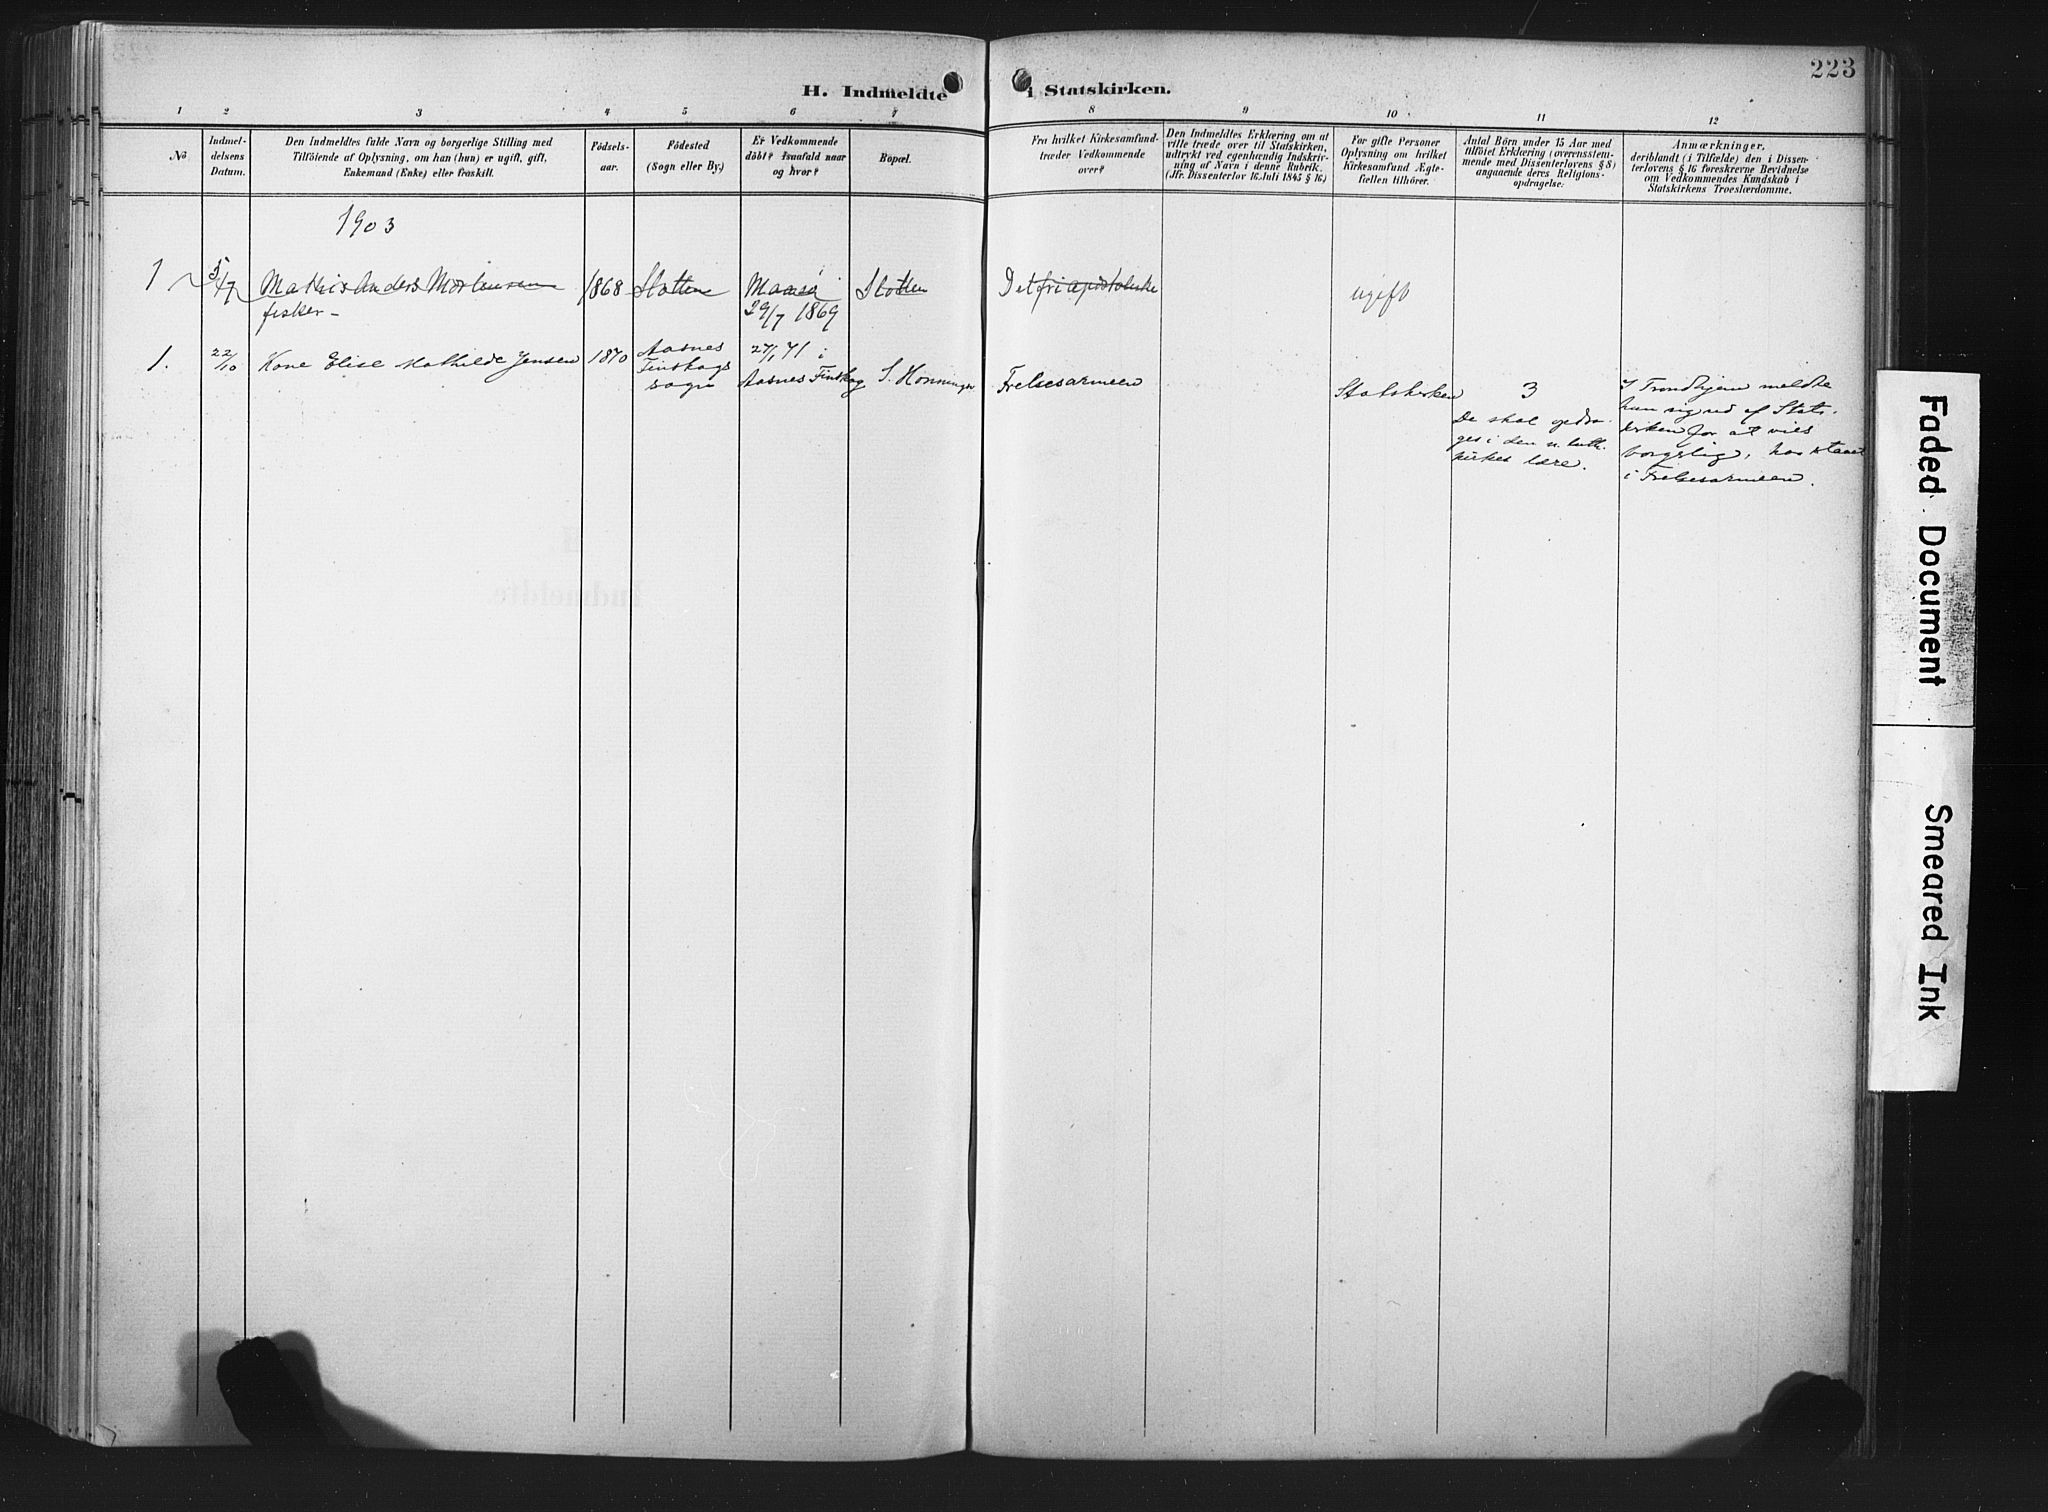 223
H. Indmeldte i Statskirken.
1 2 3 4 5 6 7 8 9 10 11 12
No
Indmel-
delsens
Datum.
Den Indmeldtes fulde Navn og borgerlige Stilling med
Tilföiende af Oplysning, om han (hun) er ugift, gift,
Enkemand (Enke) eller fraskilt.
Födsels-
aar.
Födested
(Sogn eller By.)
Er Vedkommende
döbt? Isaafald naar
og hvor?
Bopæl.
Fra hvilket Kirkesamfund
træder Vedkommende
over?
Den Indmeldtes Erklæring om at
ville træde over til Statskirken,
udtrykt ved egenhændig Indskriv-
ning af Navn i denne Rubrik.
(Jfr. Dissenterlov 16 Juli 1845 § 16.)
For gifte Personer
Oplysning om hvilket
Kirkesamfund Ægte-
fællen tilhörer.
Antal Börn under 15 Aar med
tilföiet Erklæring (overensstem-
mende med Dissenterlovens § 8)
angaaende deres Religions-
opdragelse:
Anmærkninger,
deriblandt (i Tilfælde) den i Dissen-
terlovens § 16 foreskrevne Bevidnelse
om Vedkommendes Kundskab i
Statskirkens Troeslærdomme.
1903
1 5/7 Mathis Anders Mortensen 1868 Slotten Maasö Slotten Det fri apostoliske ugift
fisker 29/7 1869
1. 22/10 Kone Elise Mathilde Jensen 1870
Aasnes
Finskogs
sogn
27/1 71 i
Aasnes Finskog
S. Honningv
Frelsesarmeen
Statskirken
3
De skal opdra-
ges i den ev. luth.
kirkes lære.
I Trondhjem meldte
hun sig ud af Stats-
kirken for at vies
borgerlig, har staaet
i Frelsesarmeen.
Faded Document
Smeared Ink